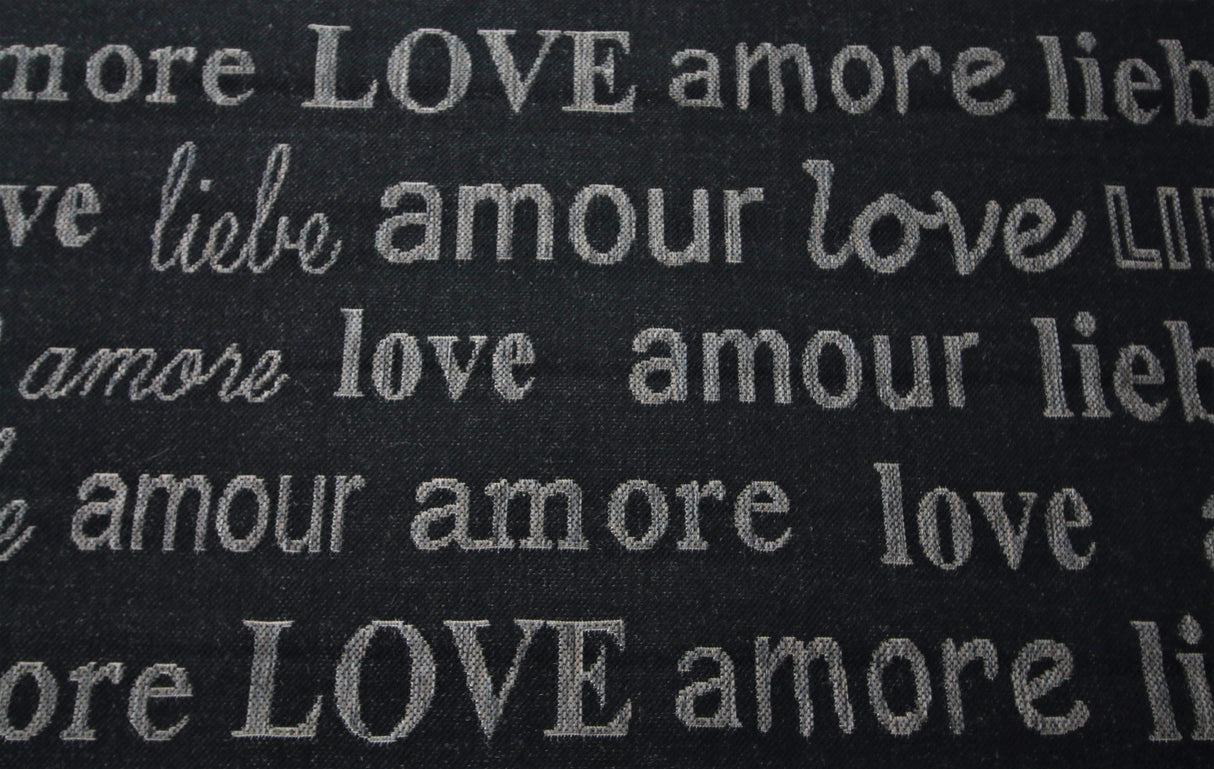 more LOVE amore lieb
ve liebe amour love LIE
amore love amour lieb
e amour amore love a
ore LOVE amore li